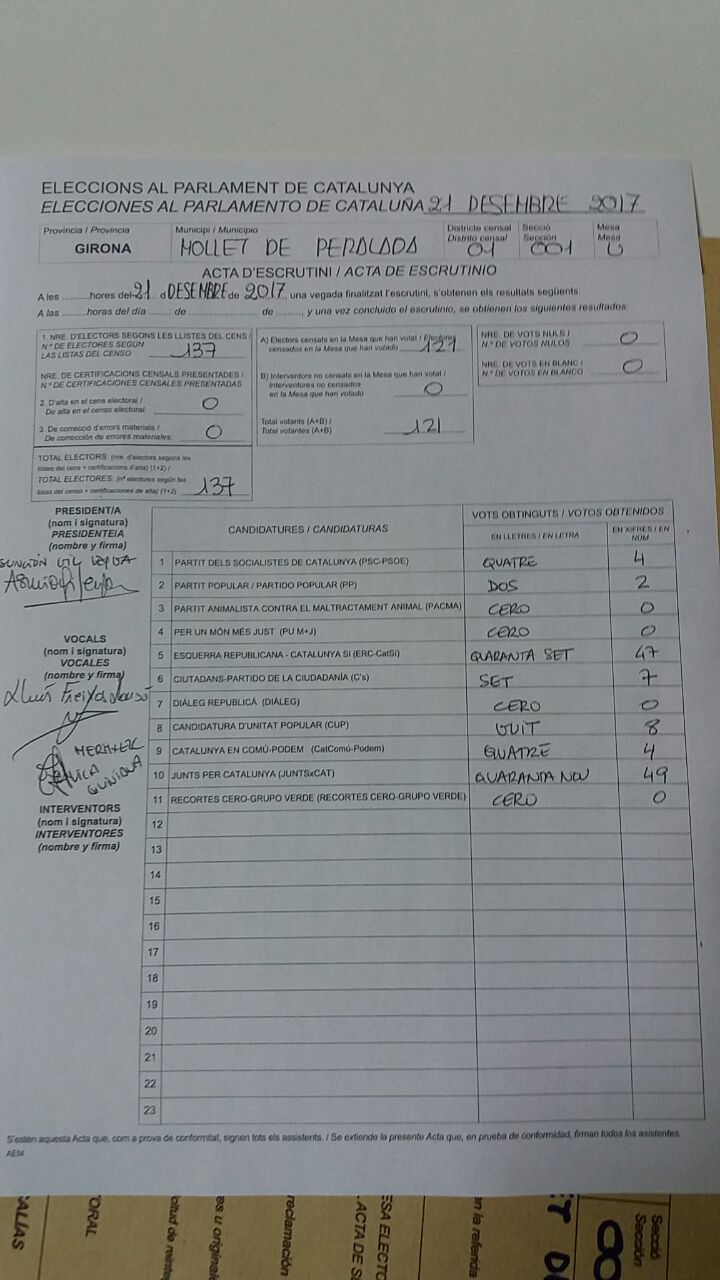 ELECCIONS AL PARLAMENT DE CATALUNYA
ELECCIONES AL PARLAMENTO DE CATALUÑA 21 DESEMBRE 2017
Provincia / Provincia
GIRONA
Municipi / Municipio
MOLLET DE PERALADA
Districte censal
Distrito censal
01
Secció
Sección
001
Mesa
Mesa
U
ACTA D'ESCRUTINI / ACTA DE ESCRUTINIO
A les ..........hores del 21 d DESEMBRE de 2017, una vegada finalitzat l'escrutini, s'obtenen els resultats següents:
A las ........horas del día ........ de .................... de .........., y una vez concluido el escrutinio, se obtienen los siguientes resultados:
1. NRE. D'ELECTORS SEGONS LES LLISTES DEL CENS /
N.º DE ELECTORES SEGÚN
LAS LISTAS DEL CENSO 137
NRE. DE CERTIFICACIONS CENSALS PRESENTADES /
N.º DE CERTIFICACIONES CENSALES PRESENTADAS
2. D'alta en el cens electoral /
De alta en el censo electoral: 0
3. De correcció d'errors materials /
De corrección de errores materiales: 0
TOTAL ELECTORS: (nre. d'electors segons les
llistes del cens + certificacions d'alta) (1+2) /
TOTAL ELECTORES: (nº electores según las
listas del censo + certificaciones de alta) (1+2) 137
A) Electors censats en la Mesa que han votat / Electores
censados en la Mesa que han votado 121
B) Interventors no censats en la Mesa que han votat /
Interventores no censados
en la Mesa que han votado 0
Total votants (A+B) /
Total votantes (A+B) 121
NRE. DE VOTS NULS /
N.º DE VOTOS NULOS 0
NRE. DE VOTS EN BLANC /
N.º DE VOTOS EN BLANCO 0
PRESIDENT/A
(nom i signatura)
PRESIDENTE/A
(nombre y firma)
VOCALS
(nom i signatura)
VOCALES
(nombre y firma)
Lluís
INTERVENTORS
(nom i signatura)
INTERVENTORES
(nombre y firma)
CANDIDATURES / CANDIDATURAS
VOTS OBTINGUTS / VOTOS OBTENIDOS
EN LLETRES / EN LETRA
EN XIFRES / EN NÚM.
1 PARTIT DELS SOCIALISTES DE CATALUNYA (PSC-PSOE) QUATRE 4
2 PARTIT POPULAR / PARTIDO POPULAR (PP) DOS 2
3 PARTIT ANIMALISTA CONTRA EL MALTRACTAMENT ANIMAL (PACMA) CERO 0
4 PER UN MÓN MÉS JUST (PU M+J) CERO 0
5 ESQUERRA REPUBLICANA - CATALUNYA SI (ERC-CatSí) QUARANTA SET 47
6 CIUTADANS-PARTIDO DE LA CIUDADANÍA (C's) SET 7
7 DIÀLEG REPUBLICÀ (DIÀLEG) CERO 0
8 CANDIDATURA D'UNITAT POPULAR (CUP) VUIT 8
9 CATALUNYA EN COMÚ-PODEM (CatComú-Podem) QUATRE 4
10 JUNTS PER CATALUNYA (JUNTSxCAT) QUARANTA NOU 49
11 RECORTES CERO-GRUPO VERDE (RECORTES CERO-GRUPO VERDE) CERO 0
12
13
14
15
16
17
18
19
20
21
22
23
S'estén aquesta Acta que, com a prova de conformitat, signen tots els assistents. / Se extiende la presente Acta que, en prueba de conformidad, firman todos los asistentes.
AEM
ALÍAS
TORAL
es u original
reclamación
ESA ELECTO
ACTA DE S
en la referida
Secció
Sección